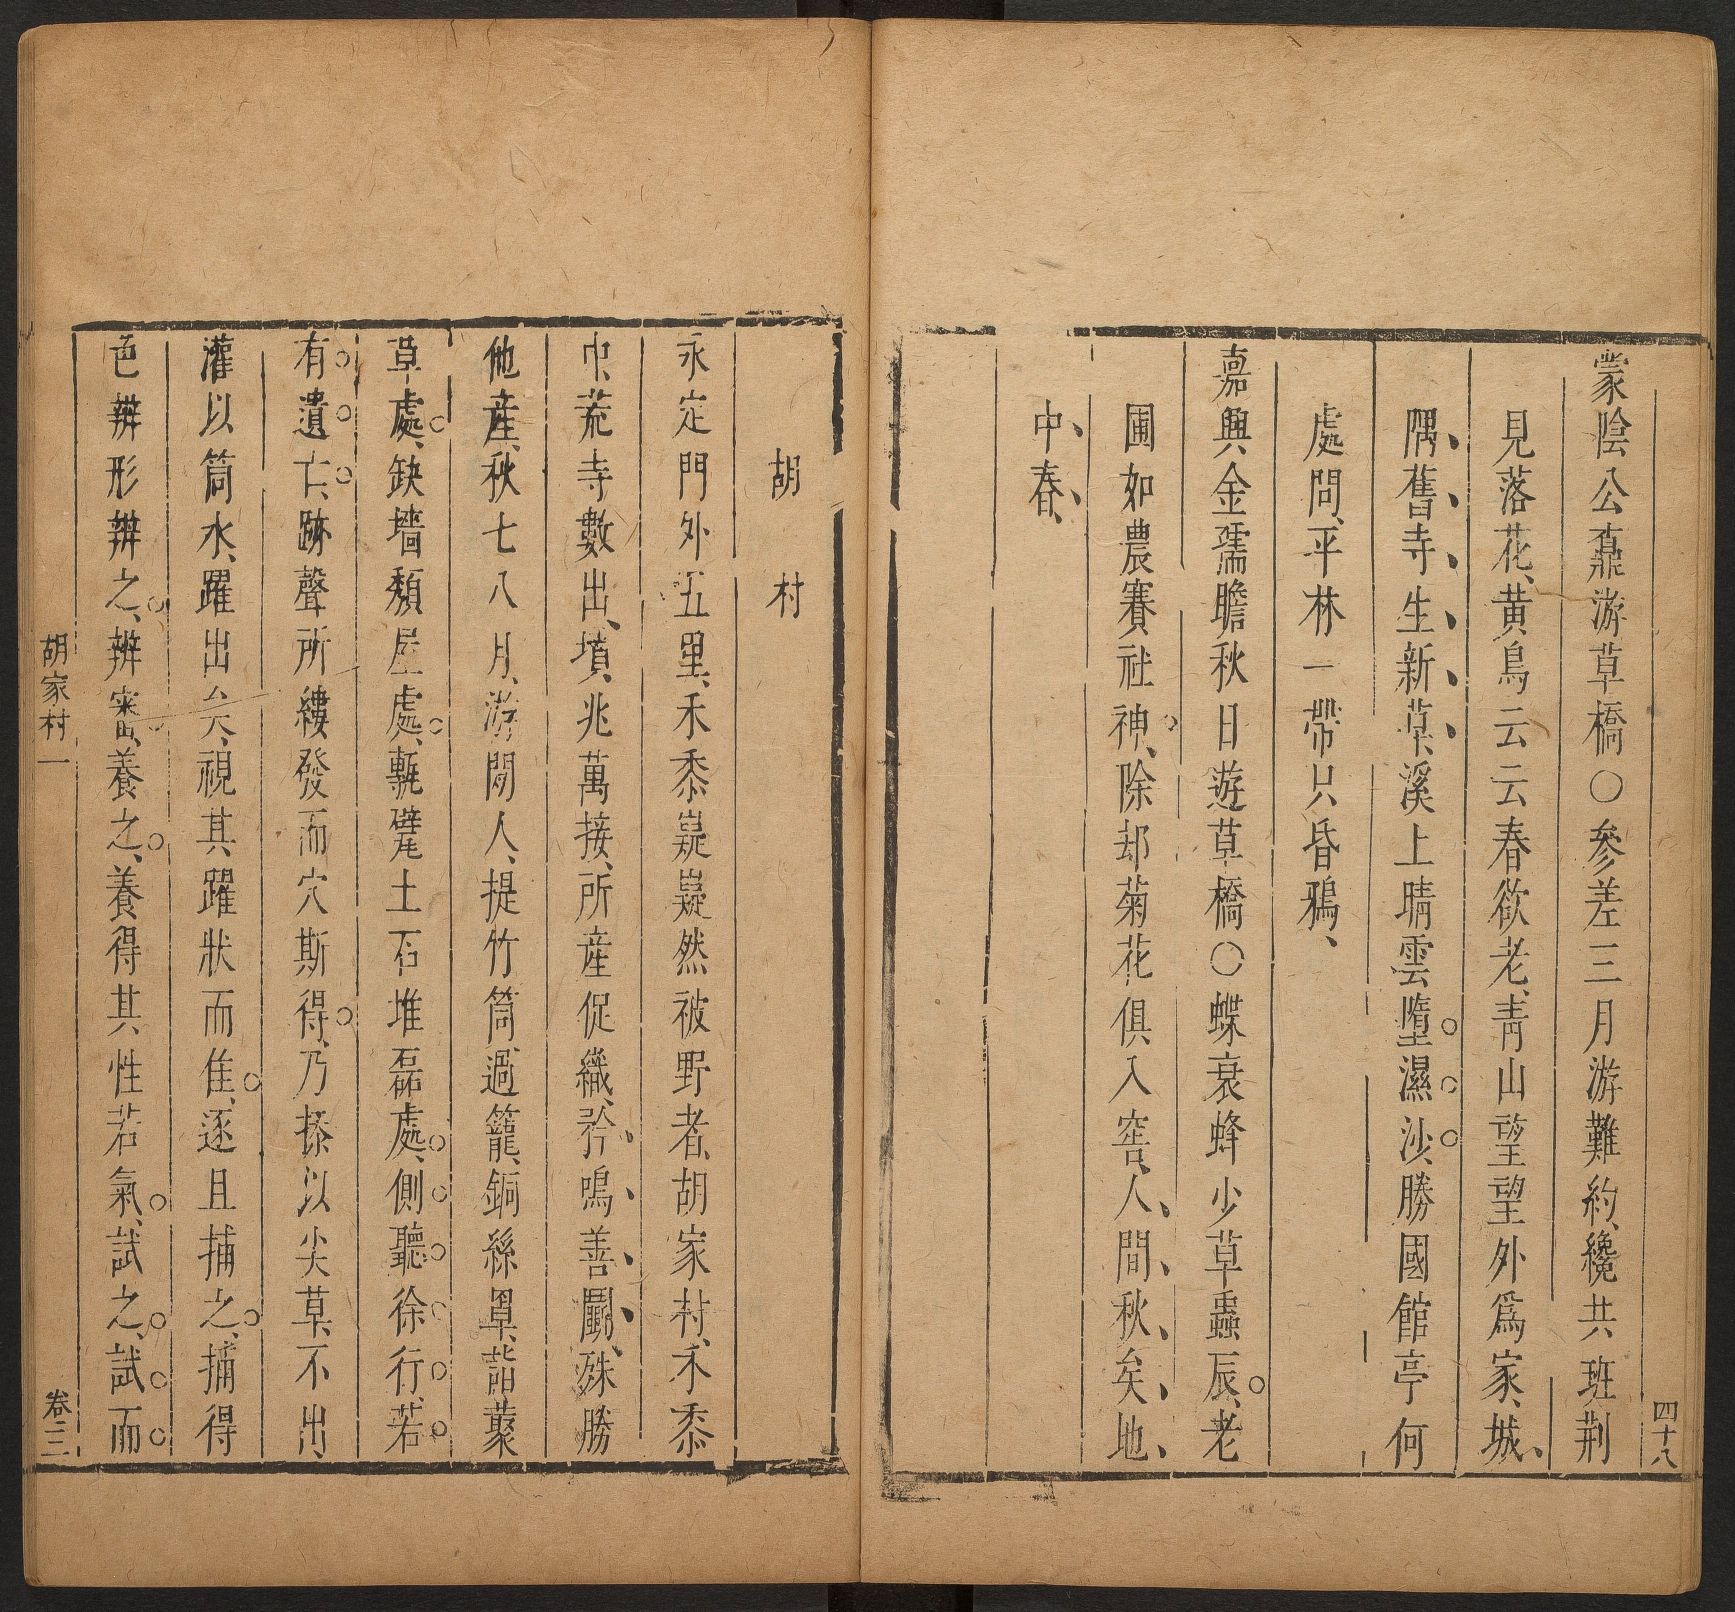 蒙陰公鼐游草橋〇參差三月游難約、纔共班荆
見落花、黄鳥云云春欲老、靑山望望外爲家、城、
隅、舊、寺、生、新、草、溪上晴雲墮濕沙、勝國館亭何
處問、平林一帶只昏鴉、
嘉興金孺瞻秋日遊草橋〇蝶衰蜂少草蟲辰、老
圃如農賽社神、除却菊花俱入窖、人、間、秋、矣、地、
中、春、
四十八
胡村
永定門外五里、禾黍嶷嶷然被野者、胡家村、禾黍
中、荒寺數出、墳兆萬接、所産促織、矜鳴善鬬、殊勝
他産、秋七八月、游閒人、提竹筒、過籠、銅絲罩、詣藂
草處、缺墻頽屋處、甎甓土石堆磊處、側聽徐行、若
有遺亡、跡聲所縷發而穴斯得、乃掭以尖草、不出、
灌以筒水、躍出矣、視其躍狀而佳、逐且捕之、捕得
色辨形辨之、辨審、養之、養得其性若氣、試之、試而
胡家村一
卷三